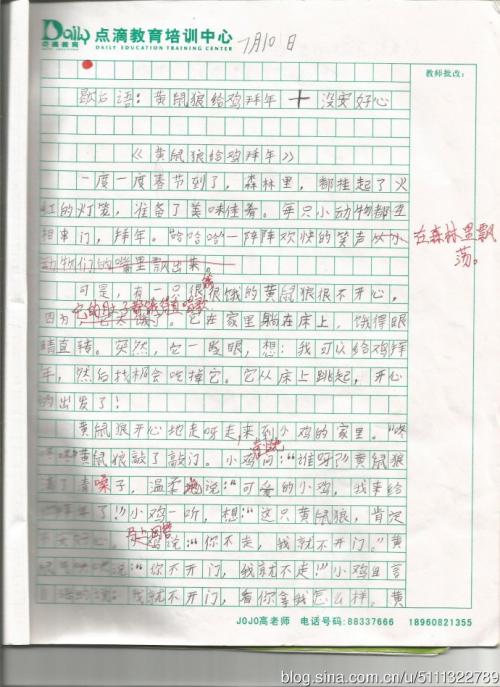 Daily 点滴教育培训中心
点滴教育 DAILY EDUCATION TRAINING CENTER
7月10日
教师批改:
歇后语:黄鼠狼给鸡拜年 十 没安好心
《黄鼠狼给鸡拜年》
一度一度春节到了,森林里,都挂起了火
红的灯笼,准备了美味佳肴。每只小动物都互
相串门,拜年。哈哈哈一阵阵欢快的笑声从小
在森林里飘荡。
动物们的嘴里飘出来。
可是,有一只很很饿的黄鼠狼很不开心,
因为 它的肚子 它在家里躺在床上,饿得眼
睛直转。突然,它一眨眼,想:我可以给鸡拜
年,然后找机会吃掉它。它从床上跳起,开心
的出发了!
黄鼠狼开心地走呀走,来到小鸡的家里。“咚
黄鼠狼敲了敲门。小鸡问:“谁呀?”黄鼠狼
清了清嗓子,温柔地说:“可爱的小鸡,我来给
拜年了!”小鸡一听,想:“这只黄鼠狼,肯定
安 心。 马上回答 说:“你不走,我就不开门。”黄
说:“你不开门,我就不走!”小鸡自言
自语的说:我就不开门,看你拿我怎么样。黄
JOJO高老师 电话号码:88337666 18960821355
blog.sina.com.cn/u/5111322789